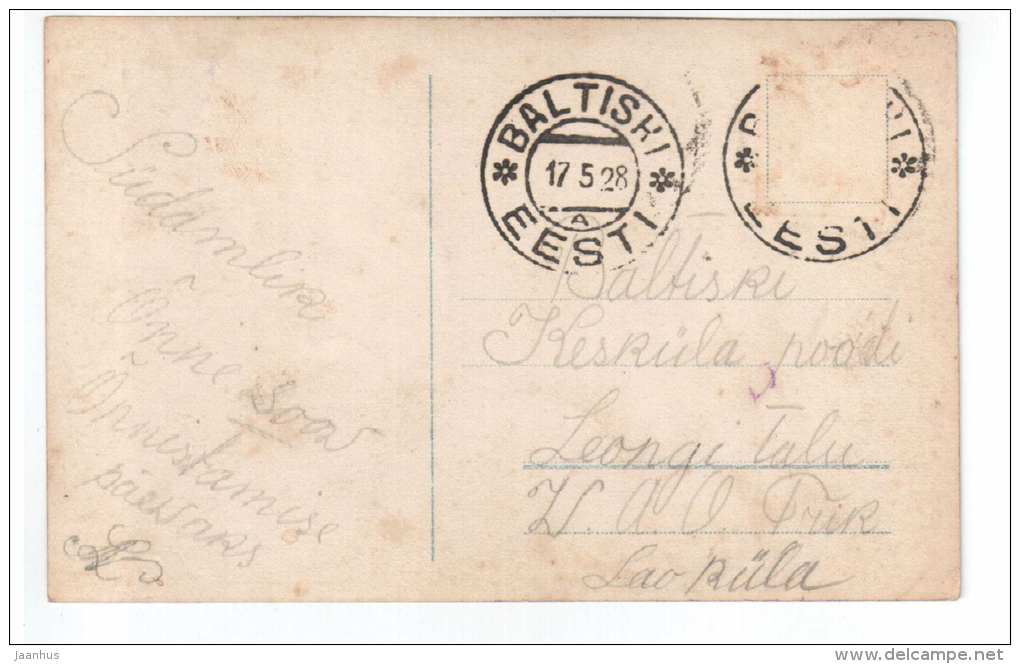 Südamlik
Õnne soov
Õnnistamise
päewaks
BALTISKI
17 5 28
A
EESTI
EESTI
Baltiski
Kesküla poodi
Leongi talu
A. O. Trik
Lao küla
jaanhus
www.delcampe.net